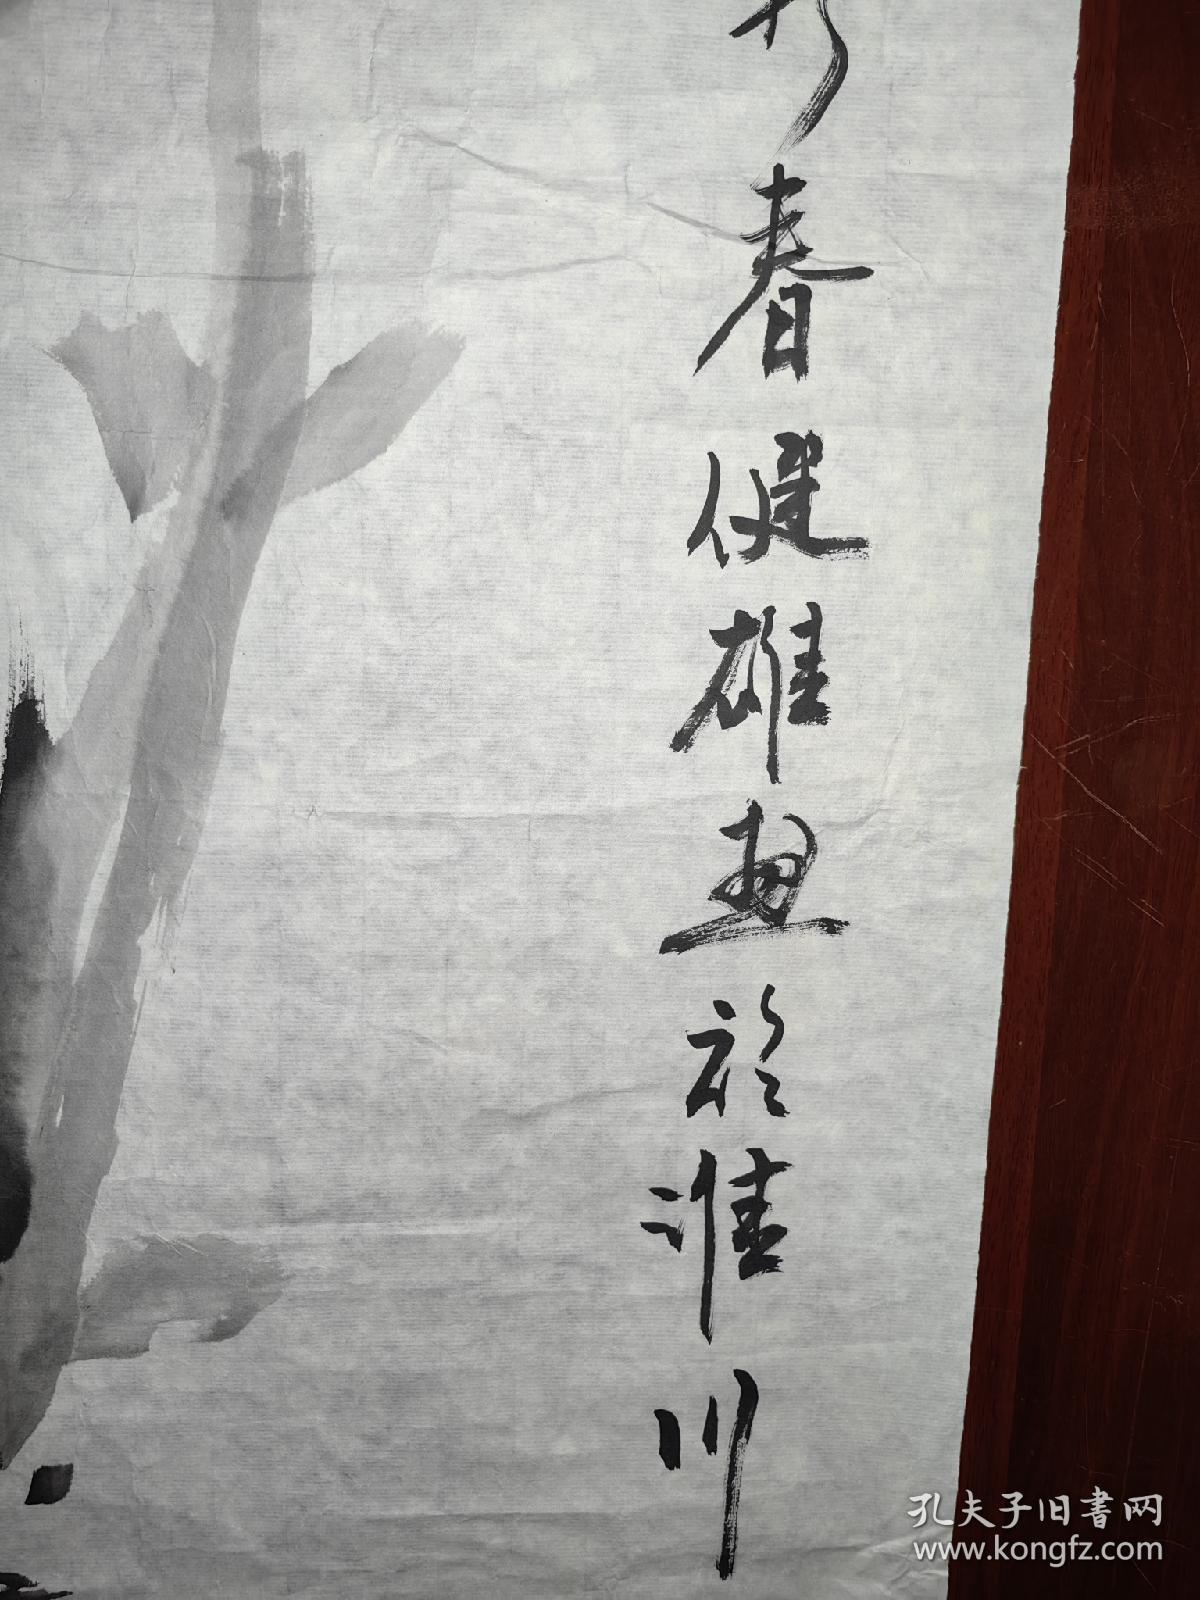 春健雄画於淮川
孔夫子旧書网
www.kongfz.com